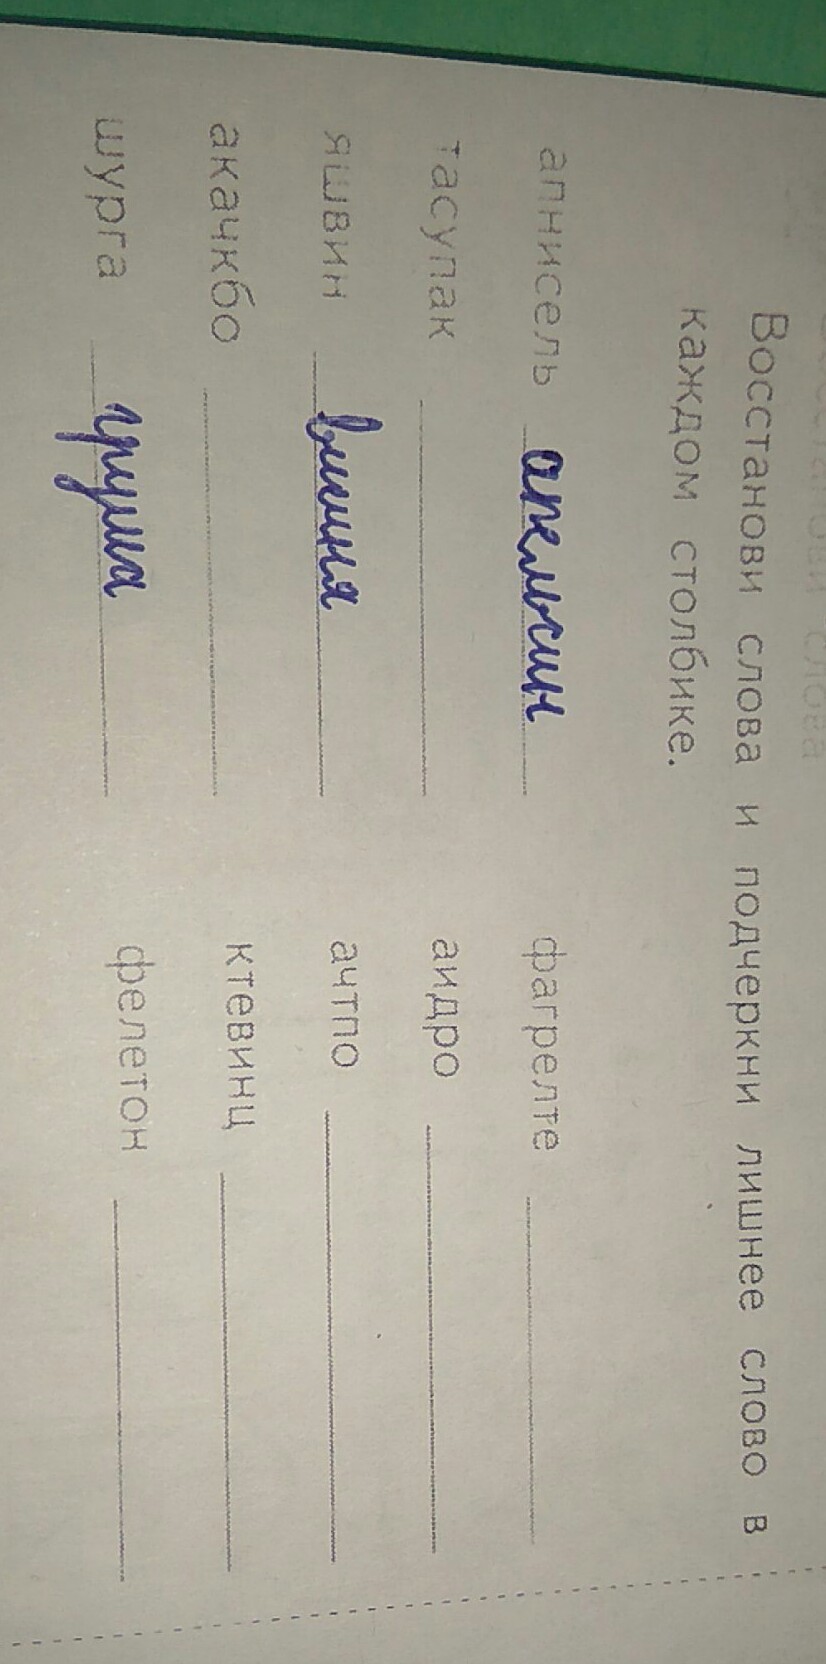 Восстанови слова и подчеркни лишнее слово в
каждом столбике.
апнисель апельсин фагрелте
тасупак аидро
яшвин вишня ачтпо
акачкбо ктевинц
шурга груша фелетон